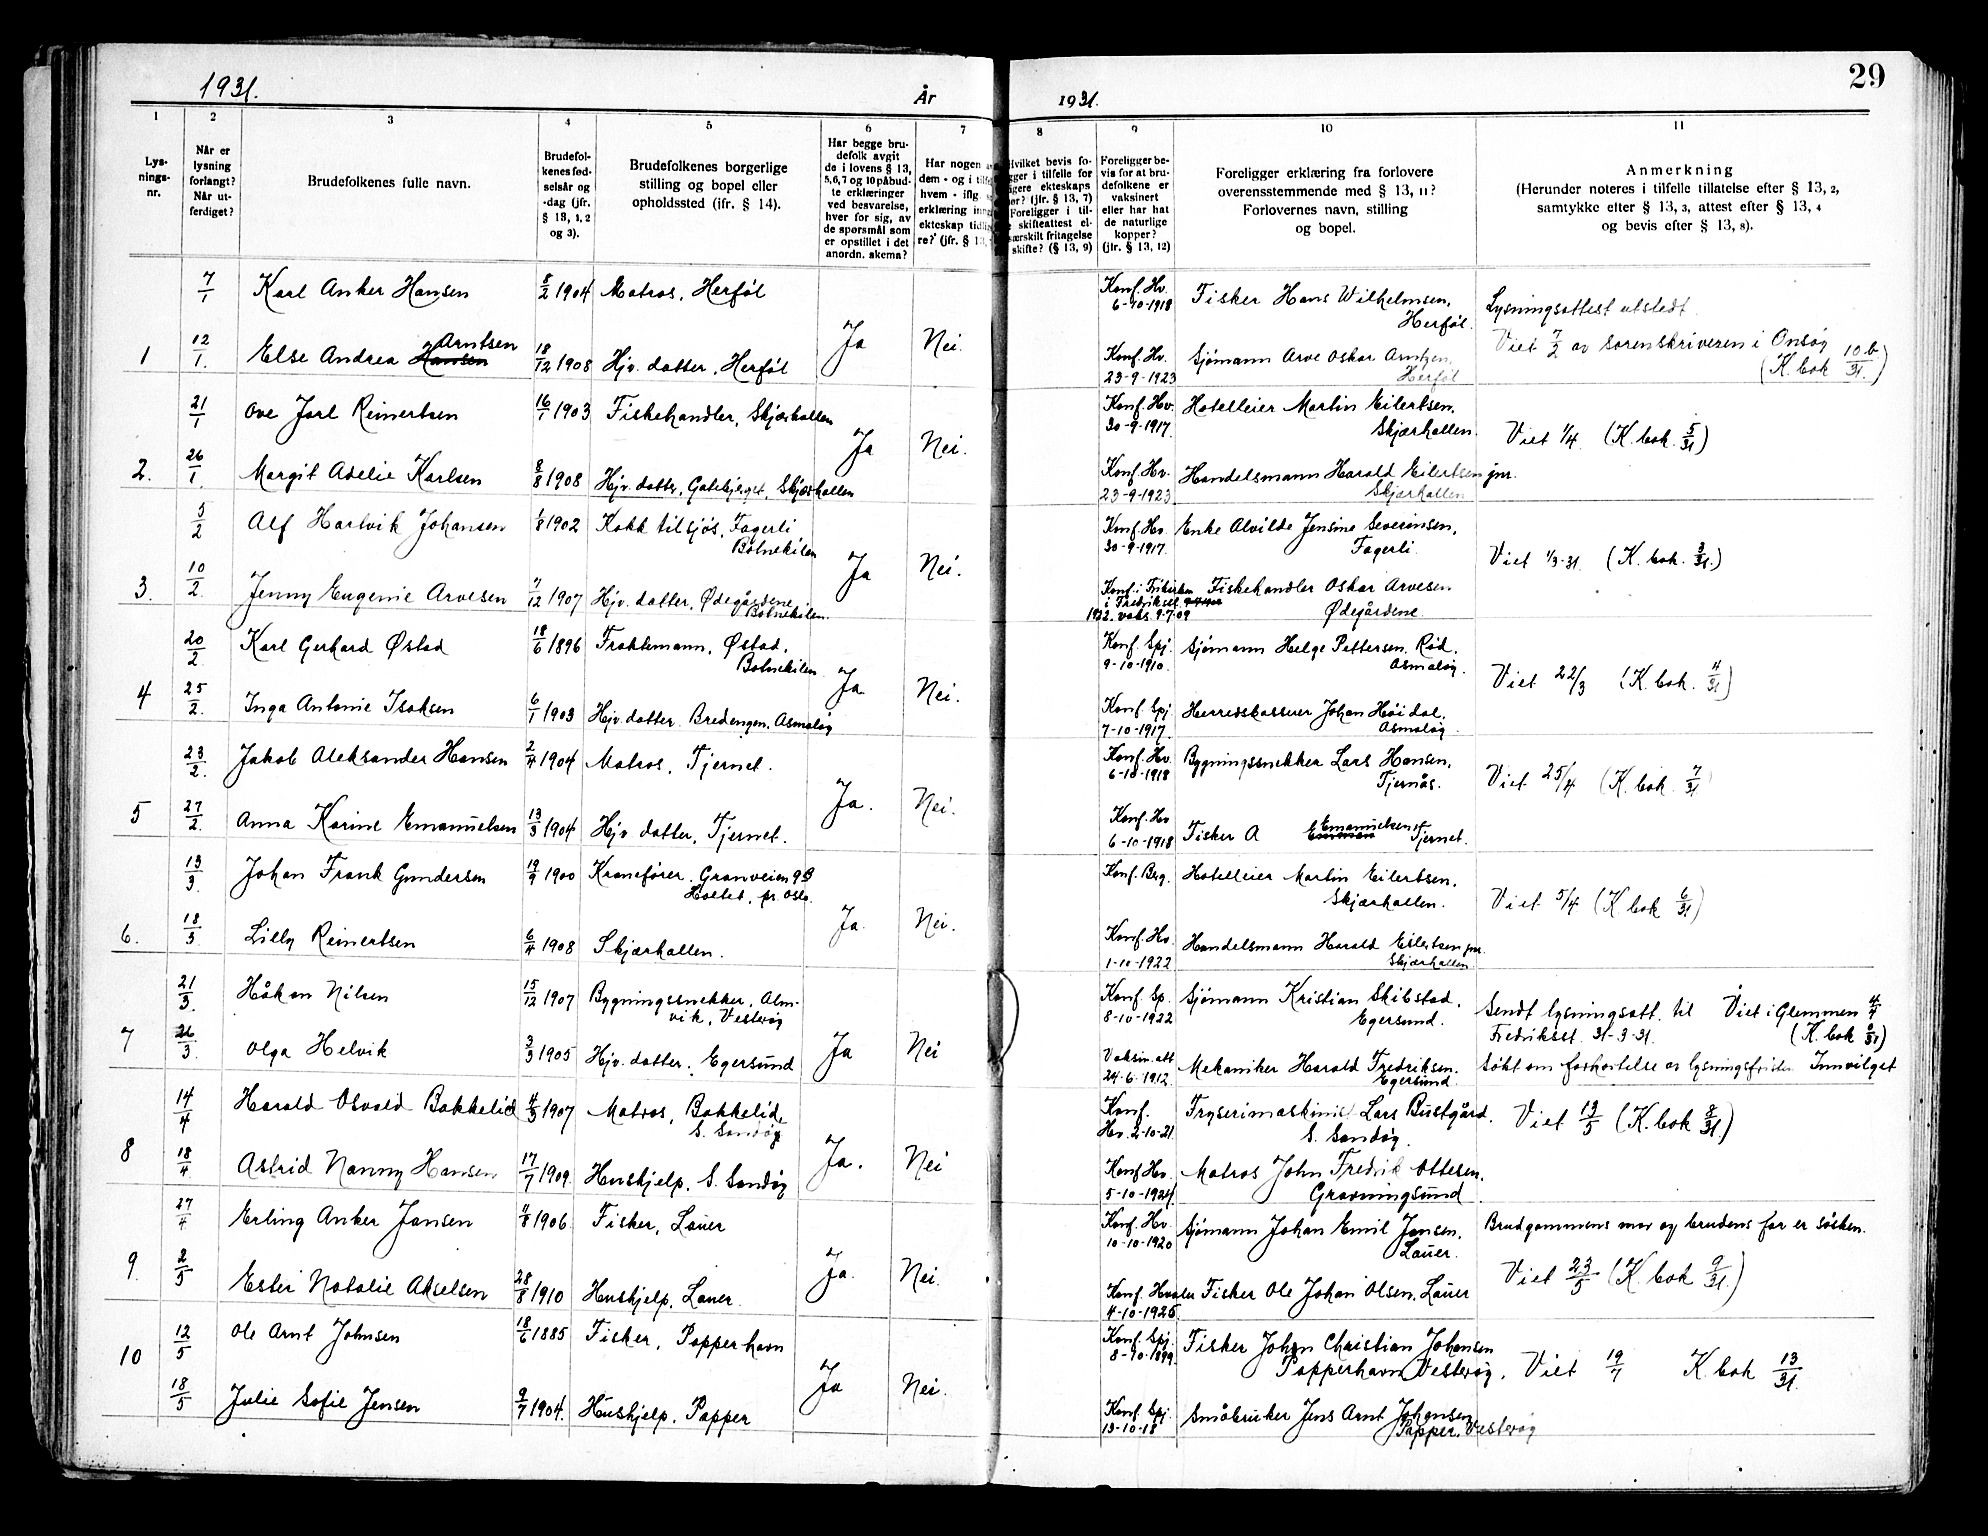 1931.
År
1931.
29
1
2
3
4
5
6
7
8
9
10
11
Lys-
nings-
nr.
Når er
lysning
forlangt?
Når ut-
ferdiget?
Brudefolkenes fulle navn.
Brudefol-
kenes fød-
selsår og
-dag (jfr.
§ 13, 1, 2
og 3).
Brudefolkenes borgerlige
stilling og bopel eller
opholdssted (ifr. § 14).
Har begge bru-
defolk avgit
de i lovens § 13,
5,6,7 og 10 påbud-
te erklæringer
ved besvarelse,
hver for sig, av
de spørsmål som
er opstillet i det
anordn. skema?
Har nogen
dem - og i
hvem - iflg.
erklæring
ekteskap
re? (jfr. § 13,
Hvilket bevis fo-
gger i tilfelle for
igere ekteskaps
? (jfr. § 13, 7)
Foreligger i til-
skifteattest el-
særskilt fritagelse
skifte? (§ 13, 9)
Foreligger be-
vis for at bru-
defolkene er
vaksinert
eller har hat
de naturlige
kopper?
(jfr. § 13, 12)
Foreligger erklæring fra forlovere
overensstemmende med § 13, 11?
Forlovernes navn, stilling
og bopel.
Anmerkning
(Herunder noteres i tilfelle tillatelse efter § 13, 2,
samtykke efter § 13, 3, attest efter § 13, 4
og bevis efter § 13, 8).
7/1 Karl Anker Hansen 8/2 1904 Matros, Herføl
Konf. Hv. 6-10-1918 Fisker Hans Wilhelmsen, Herføl.
Lysningsattest utstedt
1 12/1. Else Andrea Hansen Arntsen 18/12 1908 Hjv. datter, Herføl Ja Nei.
Konf. Hv. 23-9-1923 Sjømann Arve Oskar Arntzen, Herføl
Viet 7/2 av sorenskriveren i Onsøy (K. bok 10b/31.)
21/1 Ove Jarl Reinertsen 16/1 1903 Fiskehandler, Skjærhallen
Konf. Hv. 30-9-1917. Hotelleier Martin Eilertsen, Skjærhallen.
Viet 1/4 (K. bok. 5/31)
2. 26/1. Margit Adelie Karlsen 8/8 1908 Hjv. datter, Gatebjerget, Skjærhallen Ja Nei.
Konf. Hv. 23-9-1923 Handelsmann Harald Eilertsen jnr. Skjærhallen
5/2 Alf Hartvik Johansen 1/8 1902 Kokk tilsjøs, Fagerli Botnekilen
Konf. Hv. 30-9-1917. Enke Alvilde Jensine Severinsen, Fagerli
Viet 1/3-31 (K. bok. 3/31.)
3. 10/2. Jenny Eugenie Arvesen 7/12 1907 Hjv. datter, Ødegårdene, Botnekilen. Ja Nei.
Konf. i Frikirken i Fredrikst. 1922. vaks. 9-7-09 Fiskehandler Oskar Arvesen Ødegårdene
20/2 Karl Gerhard Østad 18/6 1896 Fraktemann, Østad, Botnekilen
Konf. Spj. 9-10-1910. Sjømann Helge Pettersen, Rød, Asmaløy
Viet 22/3 (K. bok. 4/31)
4 25/2. Inga Antonie Isaksen 6/1 1903 Hjv. datter. Bredengen, Asmaløy Ja Nei.
Konf. Spj 7-10-1917. Herredskasserer Johan Høidal, Asmaløy.
23/2. Jakob Aleksander Hansen 2/4 1904 Matros, Tjernet.
Konf. Hv. 6-10-1918 Bygningssnekker Lars Hansen, Tjernås.
Viet 25/4 (K. bok. 7/31
5 27/2. Anna Karine Emanuelsen 13/3 1904 Hjv datter, Tjernet. Ja. Nei.
Konf. Hv 6-10-1918 Fisker A Emanuelsen Tjernet.
13/3. Johan Frank Gundersen 19/9 1900 Kranefører. Granveien 9B Holtet, pr. Oslo.
Konf. Brg. Hotelleier Martin Eilertsen, Skjærhallen.
Viet 5/4 (K bok 6/31)
6. 18/3 Lilly Reinertsen 6/4 1908 Skjærhallen. Ja. Nei.
Konf. Hv. 1-10-1922 Handelsmann Harald Eilertsen jnr. Skjærhallen
21/3 Håkon Nilsen 15/12 1907 Bygningssnekker, Alm-vik, Vesterøy
Konf. Sp. 8-10-1922 Sjømann Kristian Skibstad, Egersund.
Sendt lysningsatt. til Fredrikst. 31-3-31. Viet i Glemmen 4/4 (K. bok 2/31)
7 26/3. Olga Helvik 3/3 1905 Hjv. datter, Egersund Ja Nei
Vaksin.att 24-6-1912 Mekaniker Harald Fredriksen. Egersund.
Søkt om forkortelse av lysningsfristen Innvilget
14/4 Harald Osvald Bakkelid 4/3 1907 Matros, Bakkelid, S. Sandøy
Konf. Hv. 2-10-21 Fryserimaskinist Lars Bustgård, S. Sandøy.
Viet 13/5 (K. bok 8/31.)
8 18/4 Astrid Nanny Hansen 17/7 1909 Hushjelp, S. Sandøy Ja. Nei
Konf Hv. 5-10-1924 Matros John Fredrik Ottesen, Gravningsund.
27/4 Erling Anker Jansen 11/8 1906 Fisker, Lauer
Konf. Hv 10-10-1920 Sjømann Johan Emil Jansen, Lauer.
Brudgommens mor og brudens far er søsken.
9. 2/5 Ester Natalie Akselsen 28/8 1910 Hushjelp, Lauer. Ja. Nei.
Konf. Hvaler 4-10-1925. Fisker Ole Johan Olsen, Lauer
Viet 23/5 (K. bok 9/31.)
10 12/5 Ole Arnt Johnsen 18/6 1885 Fisker, Papperhavn
Konf. Spj. 8-10-1899. Fisker Johan Christian Johansen Papperhavn Vesterøy.
Viet 19/7 K. bok 13/31.
18/5 Julie Sofie Jensen 9/7 1904. Hushjelp, Papper Ja Nei.
Konf. Spj. 13-10-18 Småbruker Jens Arnt Johansen Papper. Vesterøy